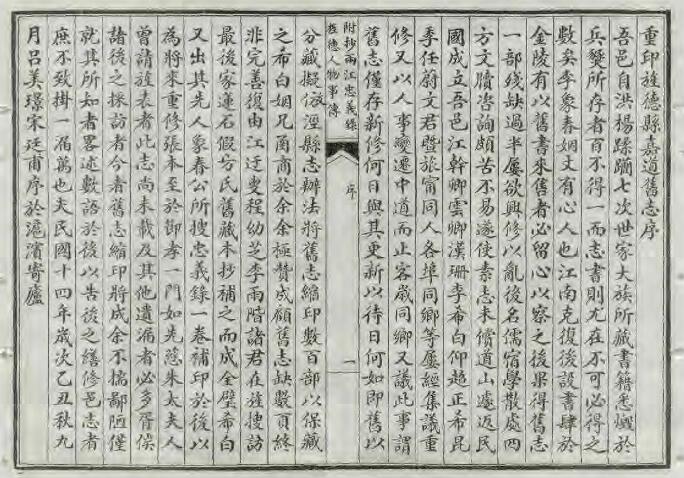 重印旌德縣嘉道舊志序
吾邑自洪楊蹂躪七次世家大族所藏書籍悉燬於
兵燹所存者百不得一而志書則尤在不可必得之
數矣李象春姻丈有心人也江南克復後設書肆於
金陵有以舊書來售者必留心以察之後果得舊志
一部殘缺過半屢欲興修以亂後名儒宿學散處四
方文牘咨詢頗苦不易遂使素志未償道山遽返民
國成立吾邑江幹卿雲卿漢珊李希白仰超正希昆
季任蔚文君暨旅甯同人各埠同鄉等屢經集議重
修又以人事變遷中道而止客歲同鄉又議此事謂
舊志僅存新修何日與其更新以待日何如即舊以
附抄兩江忠義錄
旌德人物事傳
序
一
分藏擬倣涇縣志辦法將舊志縮印數百部以保藏
之希白姻兄商於余余極贊成顧舊志缺數頁終
非完善復由江迂叟程幼芝李雨階諸君在旌搜訪
最後家蓮石假方氏舊藏本抄補之而成全璧希白
又出其先人象春公所搜忠義錄一卷補印於後以
為將來重修張本至於節孝一門如先慈朱太夫人
曾請旌表者此志尚未載及其他遺漏者必多胥俟
諸後之採訪者今者舊志縮印將成余不揣鄙陋僅
就其所知者畧述數語於後以告後之繕修邑志者
庶不致掛一漏萬也夫民國十四年歲次乙丑秋九
月呂美璟宋廷甫序於滬濱寄廬